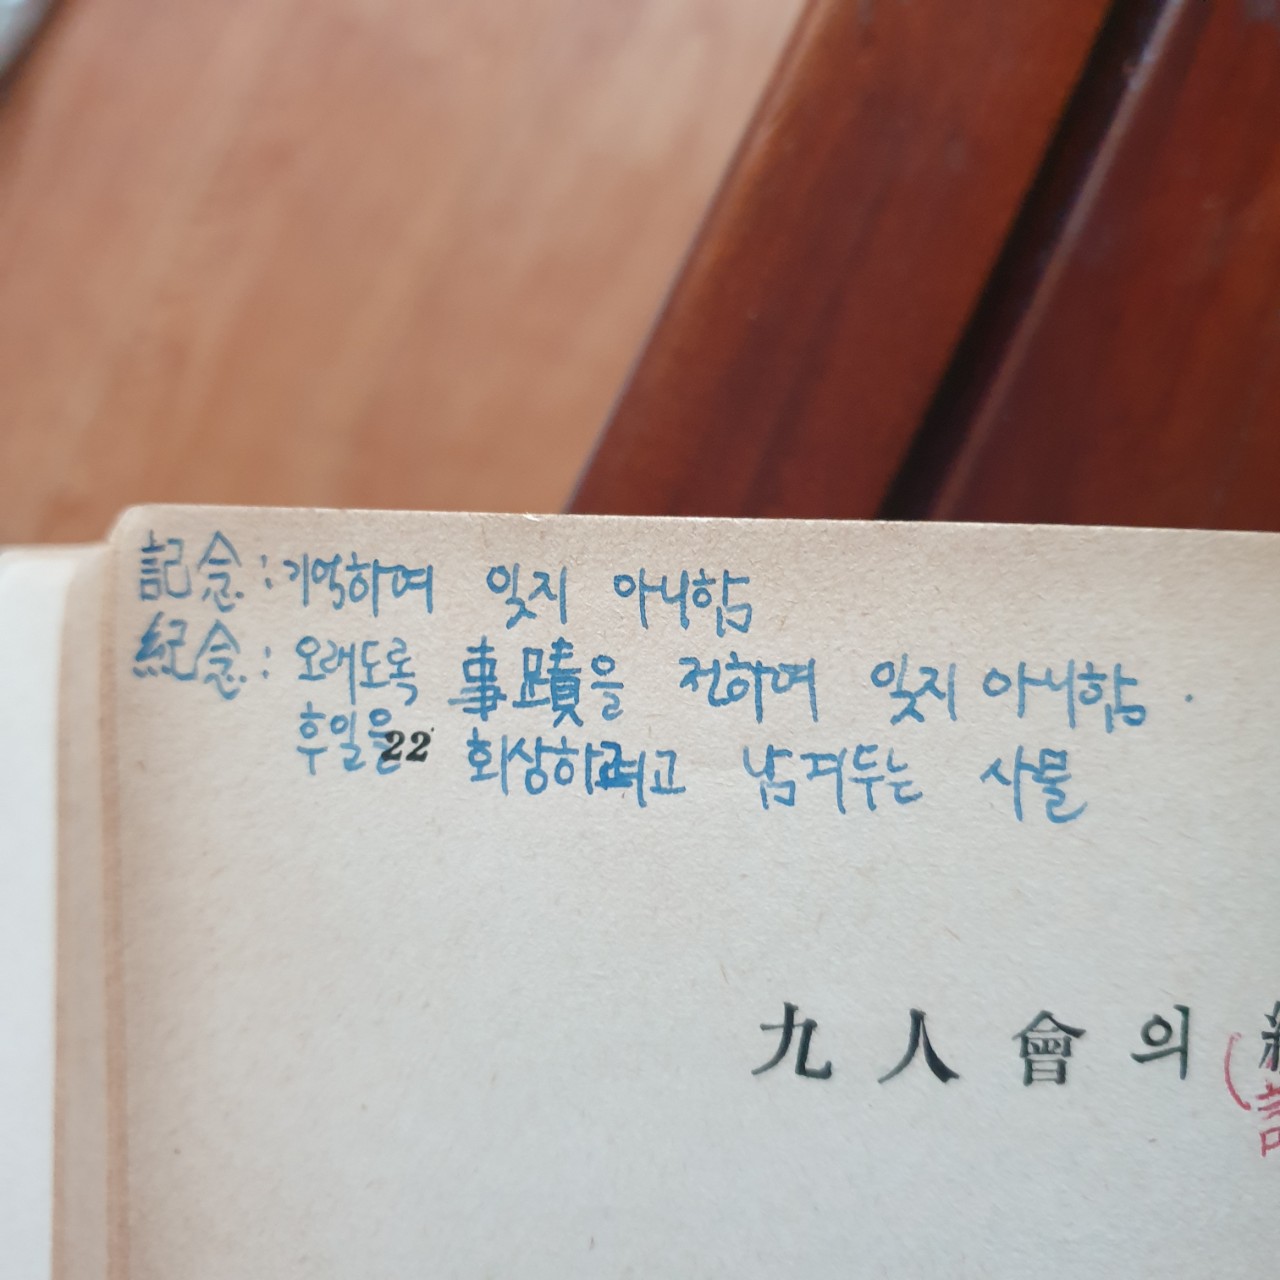 記念: 기억하여 잊지 아니함
紀念: 오래도록 事蹟을 전하며 잊지 아니함.
후일을 회상하려고 남겨두는 사물
22
九人會의